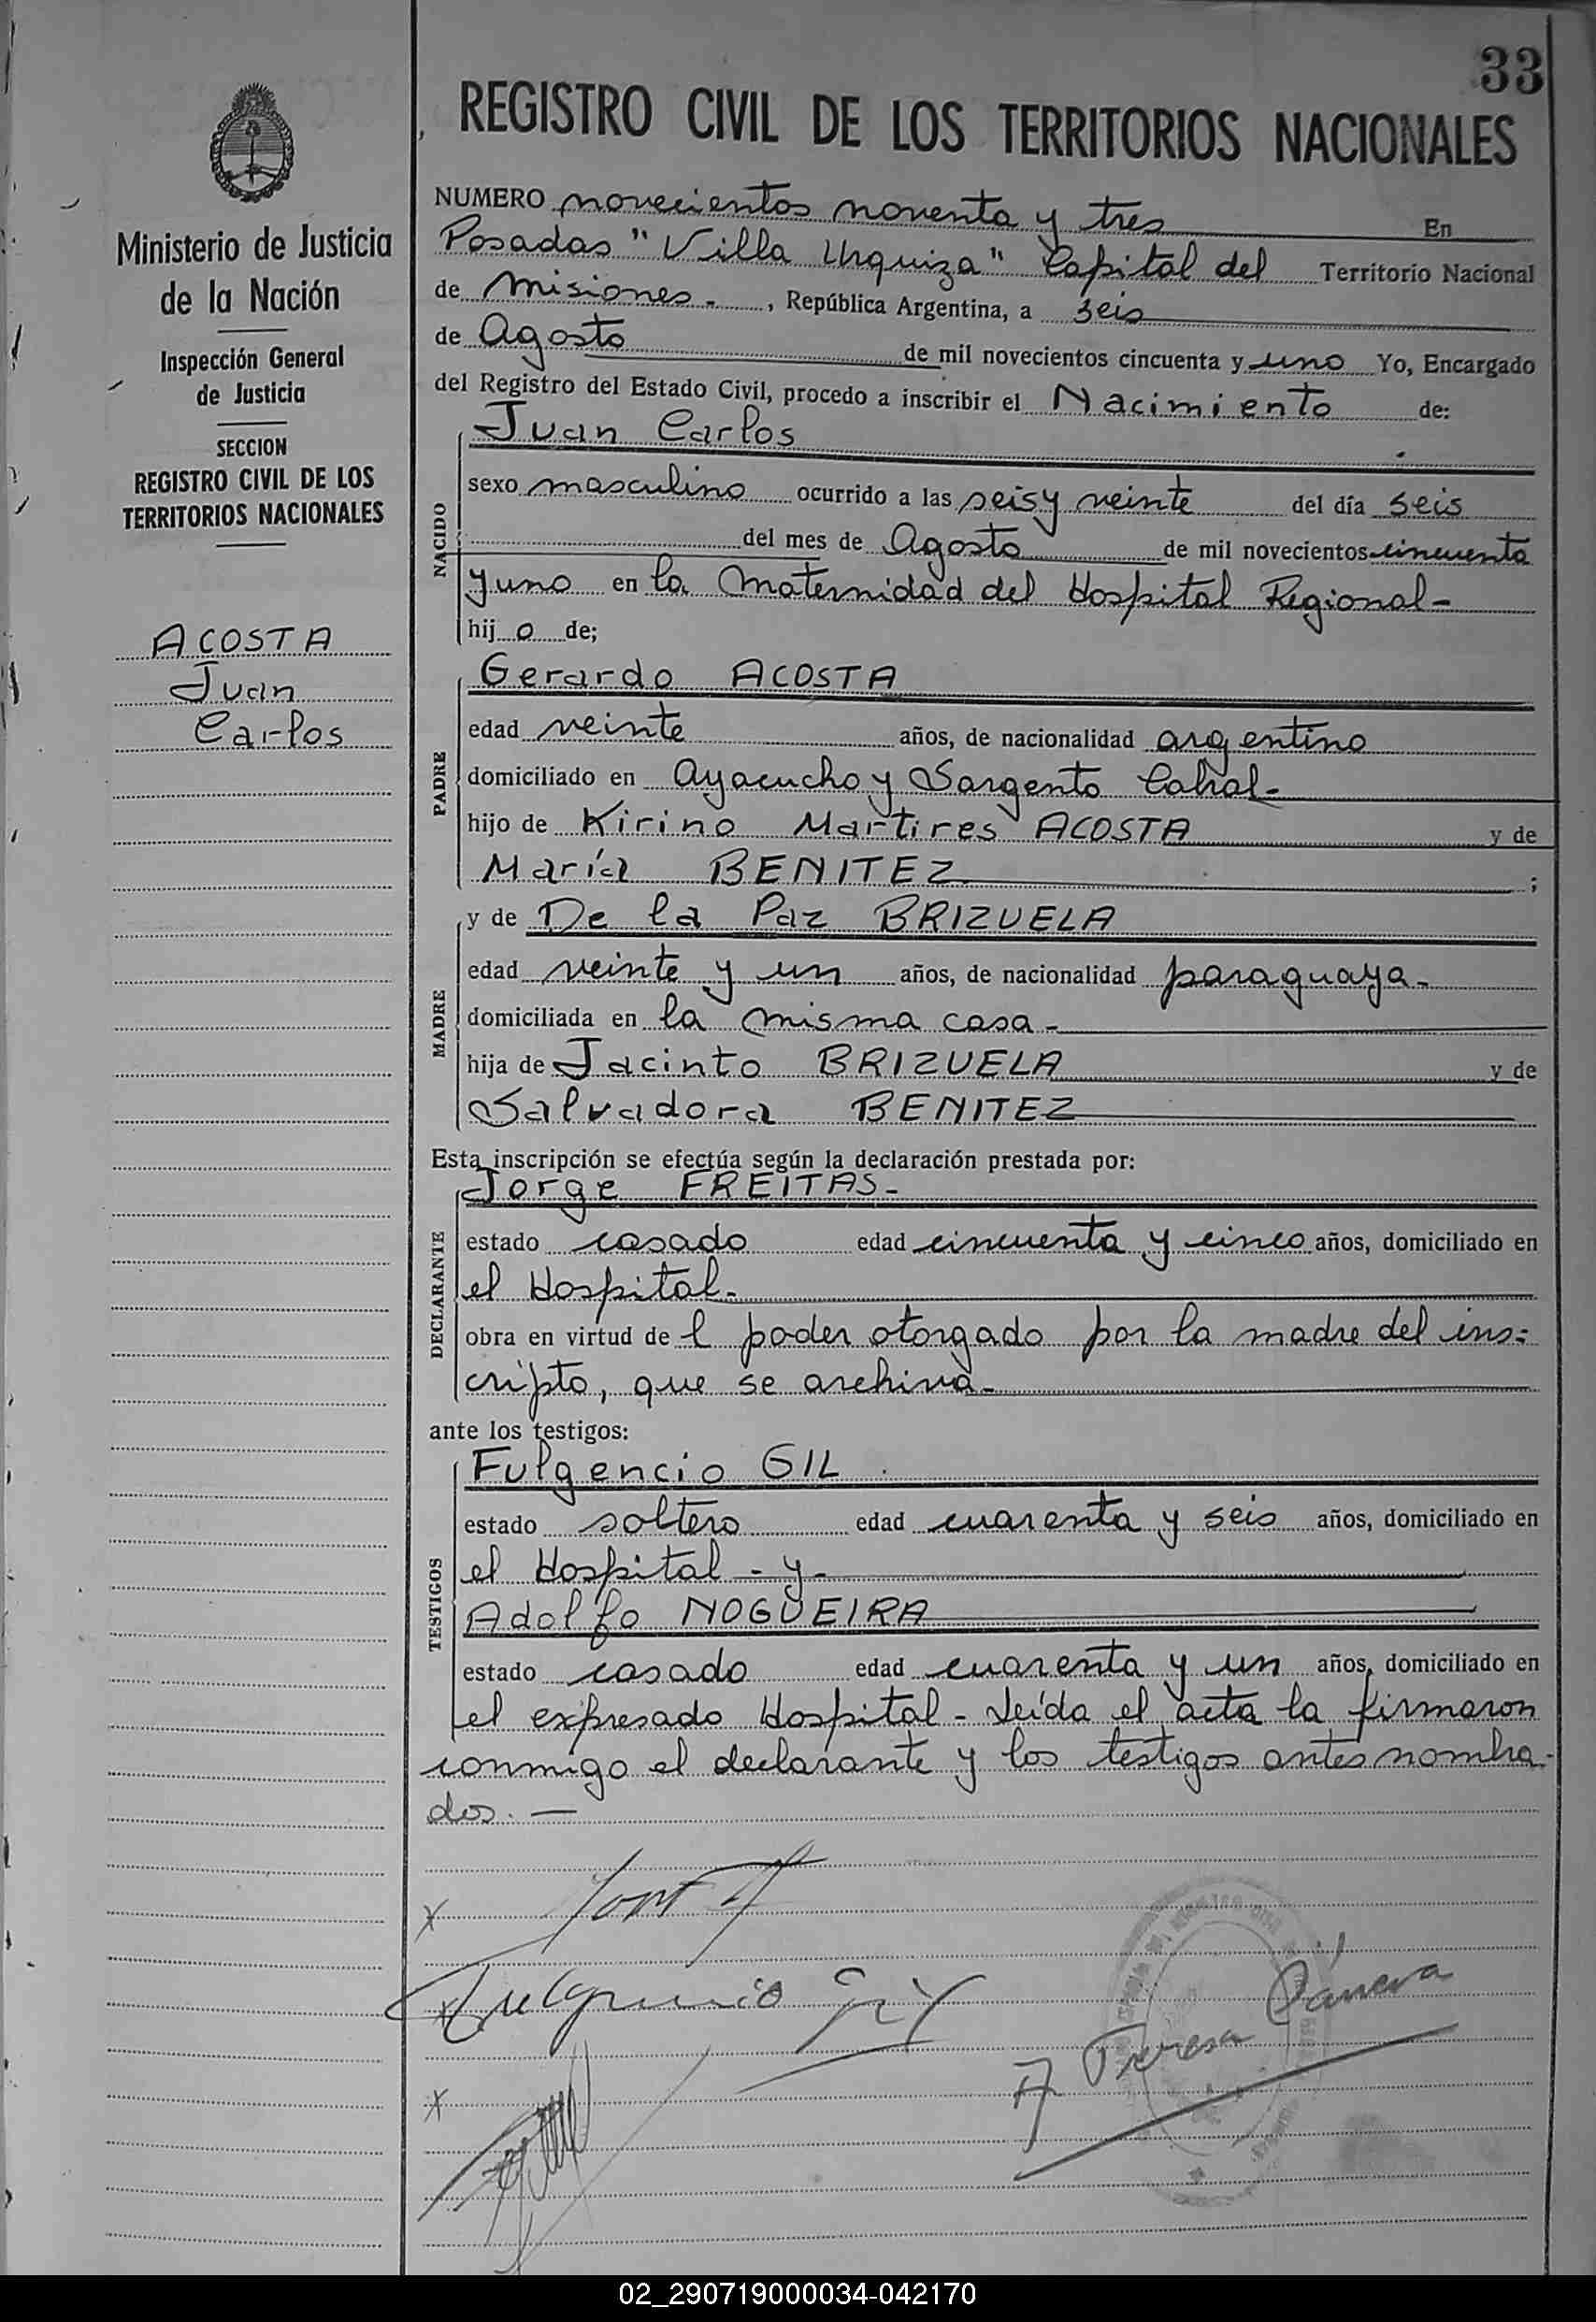 33
REGISTRO CIVIL DE LOS TERRITORIOS NACIONALES
Ministerio de Justicia
de la Nación
Inspección General
de Justicia
SECCION
REGISTRO CIVIL DE LOS
TERRITORIOS NACIONALES
ACOSTA
Juan
Carlos
NUMERO novecientos noventa y tres En
Posadas "Villa Urquiza" Capital del Territorio Nacional
de Misiones.-, República Argentina, a seis
de Agosto de mil novecientos cincuenta y uno Yo, Encargado
del Registro del Estado Civil, procedo a inscribir el Nacimiento de:
NACIDO
Juan Carlos
sexo masculino ocurrido a las seis y veinte del día seis
del mes de Agosto de mil novecientos cincuenta
y uno en la Maternidad del Hospital Regional-
hijo de;
PADRE
Gerardo ACOSTA
edad veinte años, de nacionalidad argentino
domiciliado en Ayacucho y Sargento Cabral-
hijo de Kirino Martires ACOSTA y de
María BENITEZ ;
MADRE
y de De la Paz BRIZUELA
edad veinte y un años, de nacionalidad paraguaya-
domiciliada en la misma casa-
hija de Jacinto BRIZUELA y de
Salvadora BENITEZ
Esta inscripción se efectúa según la declaración prestada por:
DECLARANTE
Jorge FREITAS-
estado casado edad cincuenta y cinco años, domiciliado en
el Hospital-
obra en virtud de l poder otorgado por la madre del ins=
cripto, que se archiva-
ante los testigos:
TESTIGOS
Fulgencio GIL
estado soltero edad cuarenta y seis años, domiciliado en
el Hospital - y-
Adolfo NOGUEIRA
estado casado edad cuarenta y un años, domiciliado en
el expresado Hospital - Leída el acta la firmaron
conmigo el declarante y los testigos antes nombra-
dos.-
x
x Fulgencio Gil
A Teresa
x
02_290719000034-042170